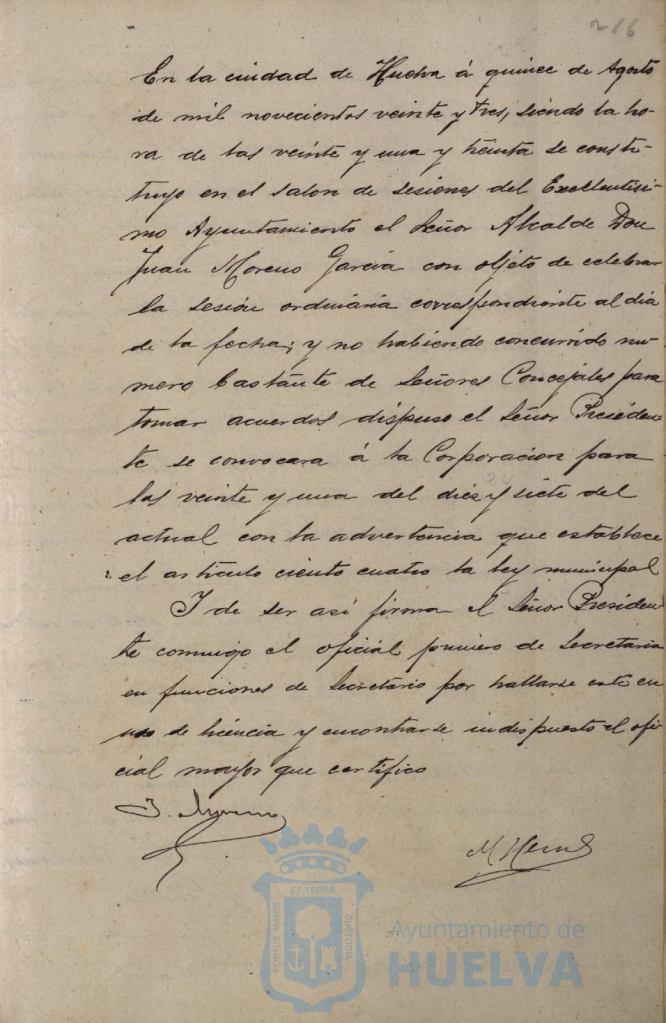 216
En la ciudad de Huelva á quince de Agosto
de mil novecientos veinte y tres, siendo la ho-
ra de las veinte y una y treinta se consti-
tuyo en el salon de sesiones del Excelentisi-
mo Ayuntamiento el Señor Alcalde Don
Juan Moreno Garcia con objeto de celebrar
la sesión ordinaria correspondiente al dia
de la fecha; y no habiendo concurrido nu-
mero bastante de Señores Concejales para
tomar acuerdos dispuso el Señor Presiden-
te se convocara á la Corporacion para
las veinte y una del diez y siete del
actual con la advertencia que establece
el articulo ciento cuatro la ley municipal
I de ser asi firma el Señor Presiden
te conmigo el oficial primero de Secretaria
en funciones de Secretario por hallarse este en
uso de licencia y encontrarse indispuesto el ofi-
cial mayor que certifico
J. Moreno
PORTUS MARIS ET TERRÆ CUSTODIA
Ayuntamiento de
HUELVA